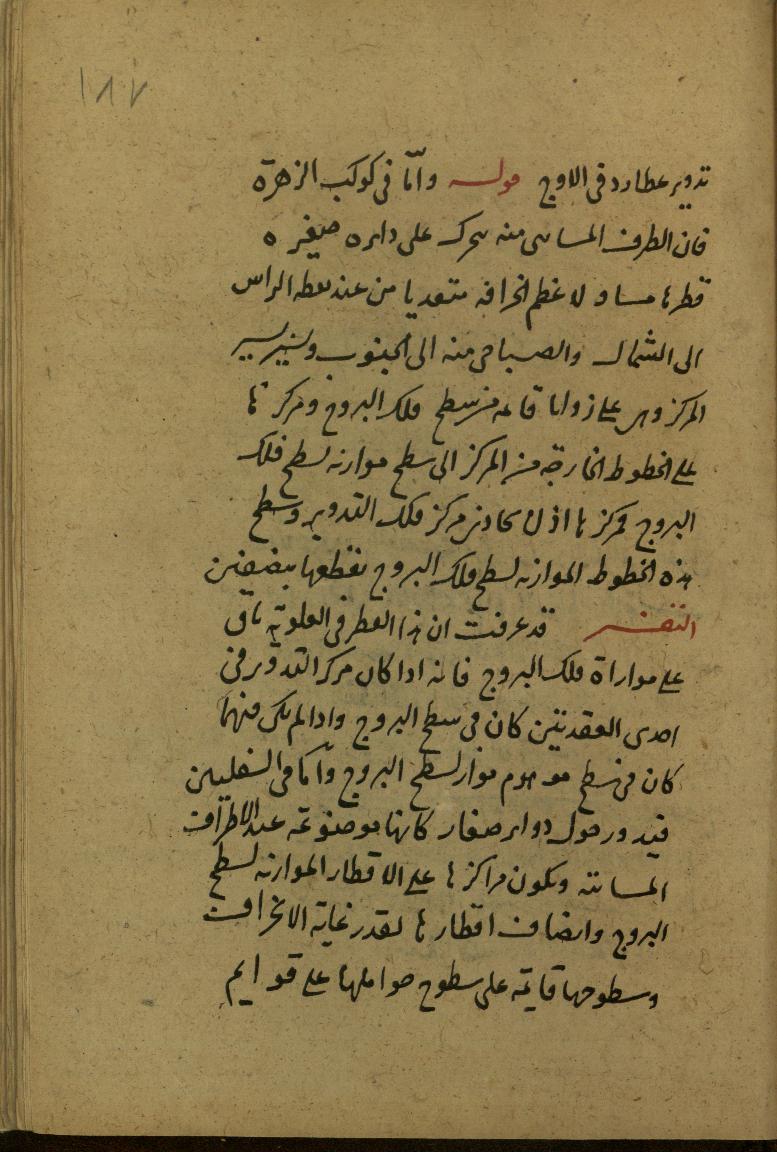 ١٨٧
تدوير عطارد فى الاوج قوله وامّا فى كوكب الزهرة
فان الطرف المسائى منه يتحرك على دايره صغيره
قطرها مساو لاعظم انحرافه متعديا من عند نقطه الراس
الى الشمال والصباحى منه الى الجنوب
المركز وهى على زوايا قايمه من سطح فلك البروج ومركزها
على الخطوط الخارجه من المركز الى سطح موازنه لسطح فلك
البروج فمركزها اذن يحاذى مركز فلك التدوير وسطح
هذه الخطوط الموازنه لسطح فلك البروج يقطعها بنصفين
التفسير قد عرفت ان هذا القطر فى العلويّة باق
على موازاة فلك البروج فانه اذا كان مركز التدوير فى
احدى العقدتين كان فى سطح البروج واذا لم يكن فيهما
كان فى سطح موهوم مواز لسطح البروج وامّا فى السفليين
فيدور حول دواير صغار كانها موضوعة عند الاطراف
المسائيه ويكون مراكزها على الاقطار الموازنه لسطح
البروج وانصاف اقطارها بقدر غاية الانحراف
وسطوحها قايمة على سطوح حواملها على قوايم